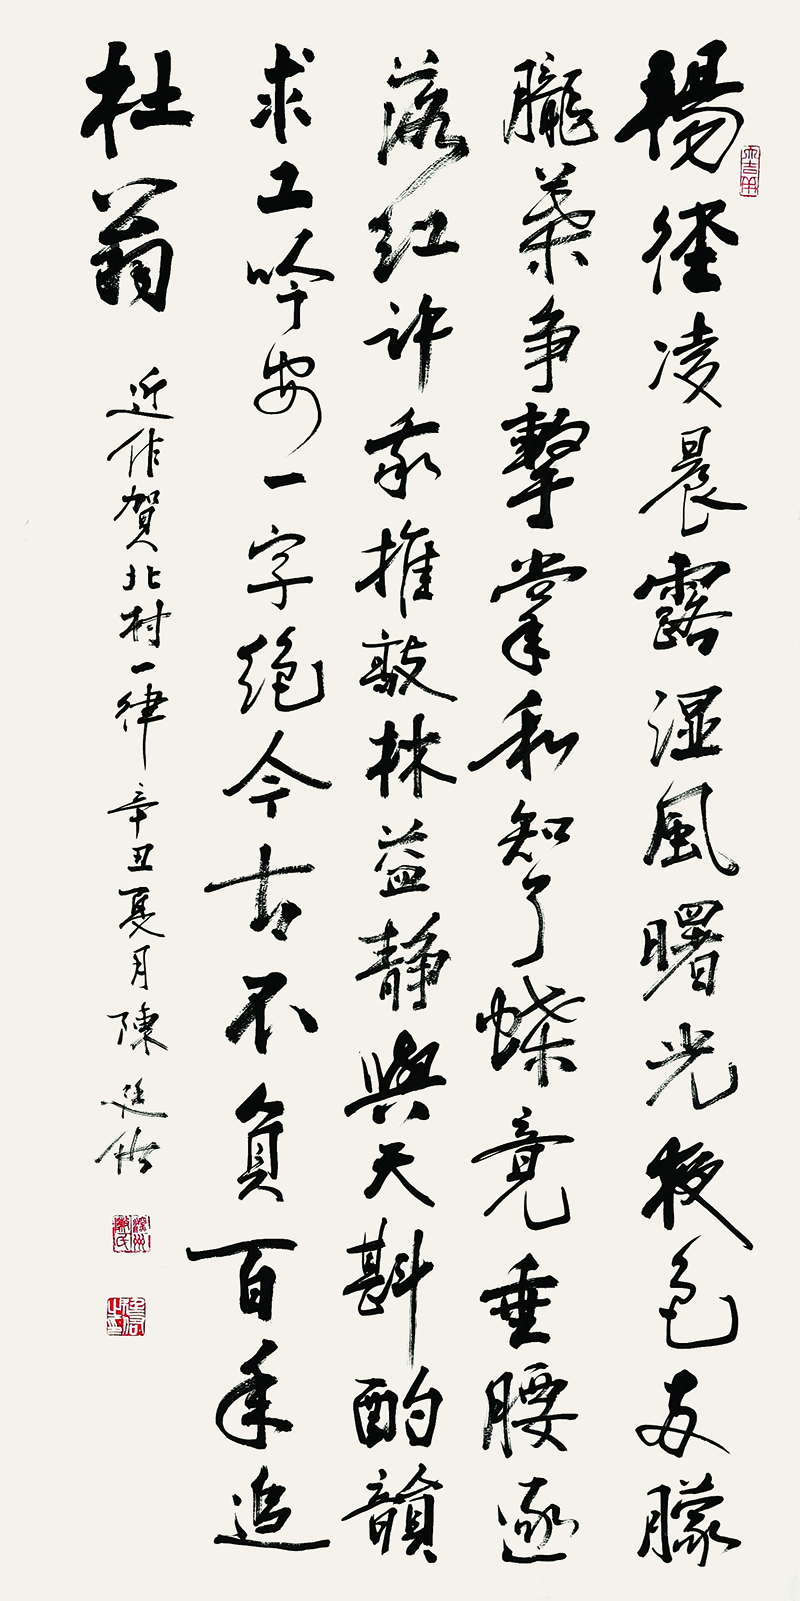 楊徑凌晨露湿風曙光夜色两朦
朧葉争擊掌和知了蝶竟垂腰逐
落红许我推敲林益静與天斟酌韻
求工吟安一字絶今古不負百年追
杜翁 近作賀北村一律 辛丑夏月 陳廷佑